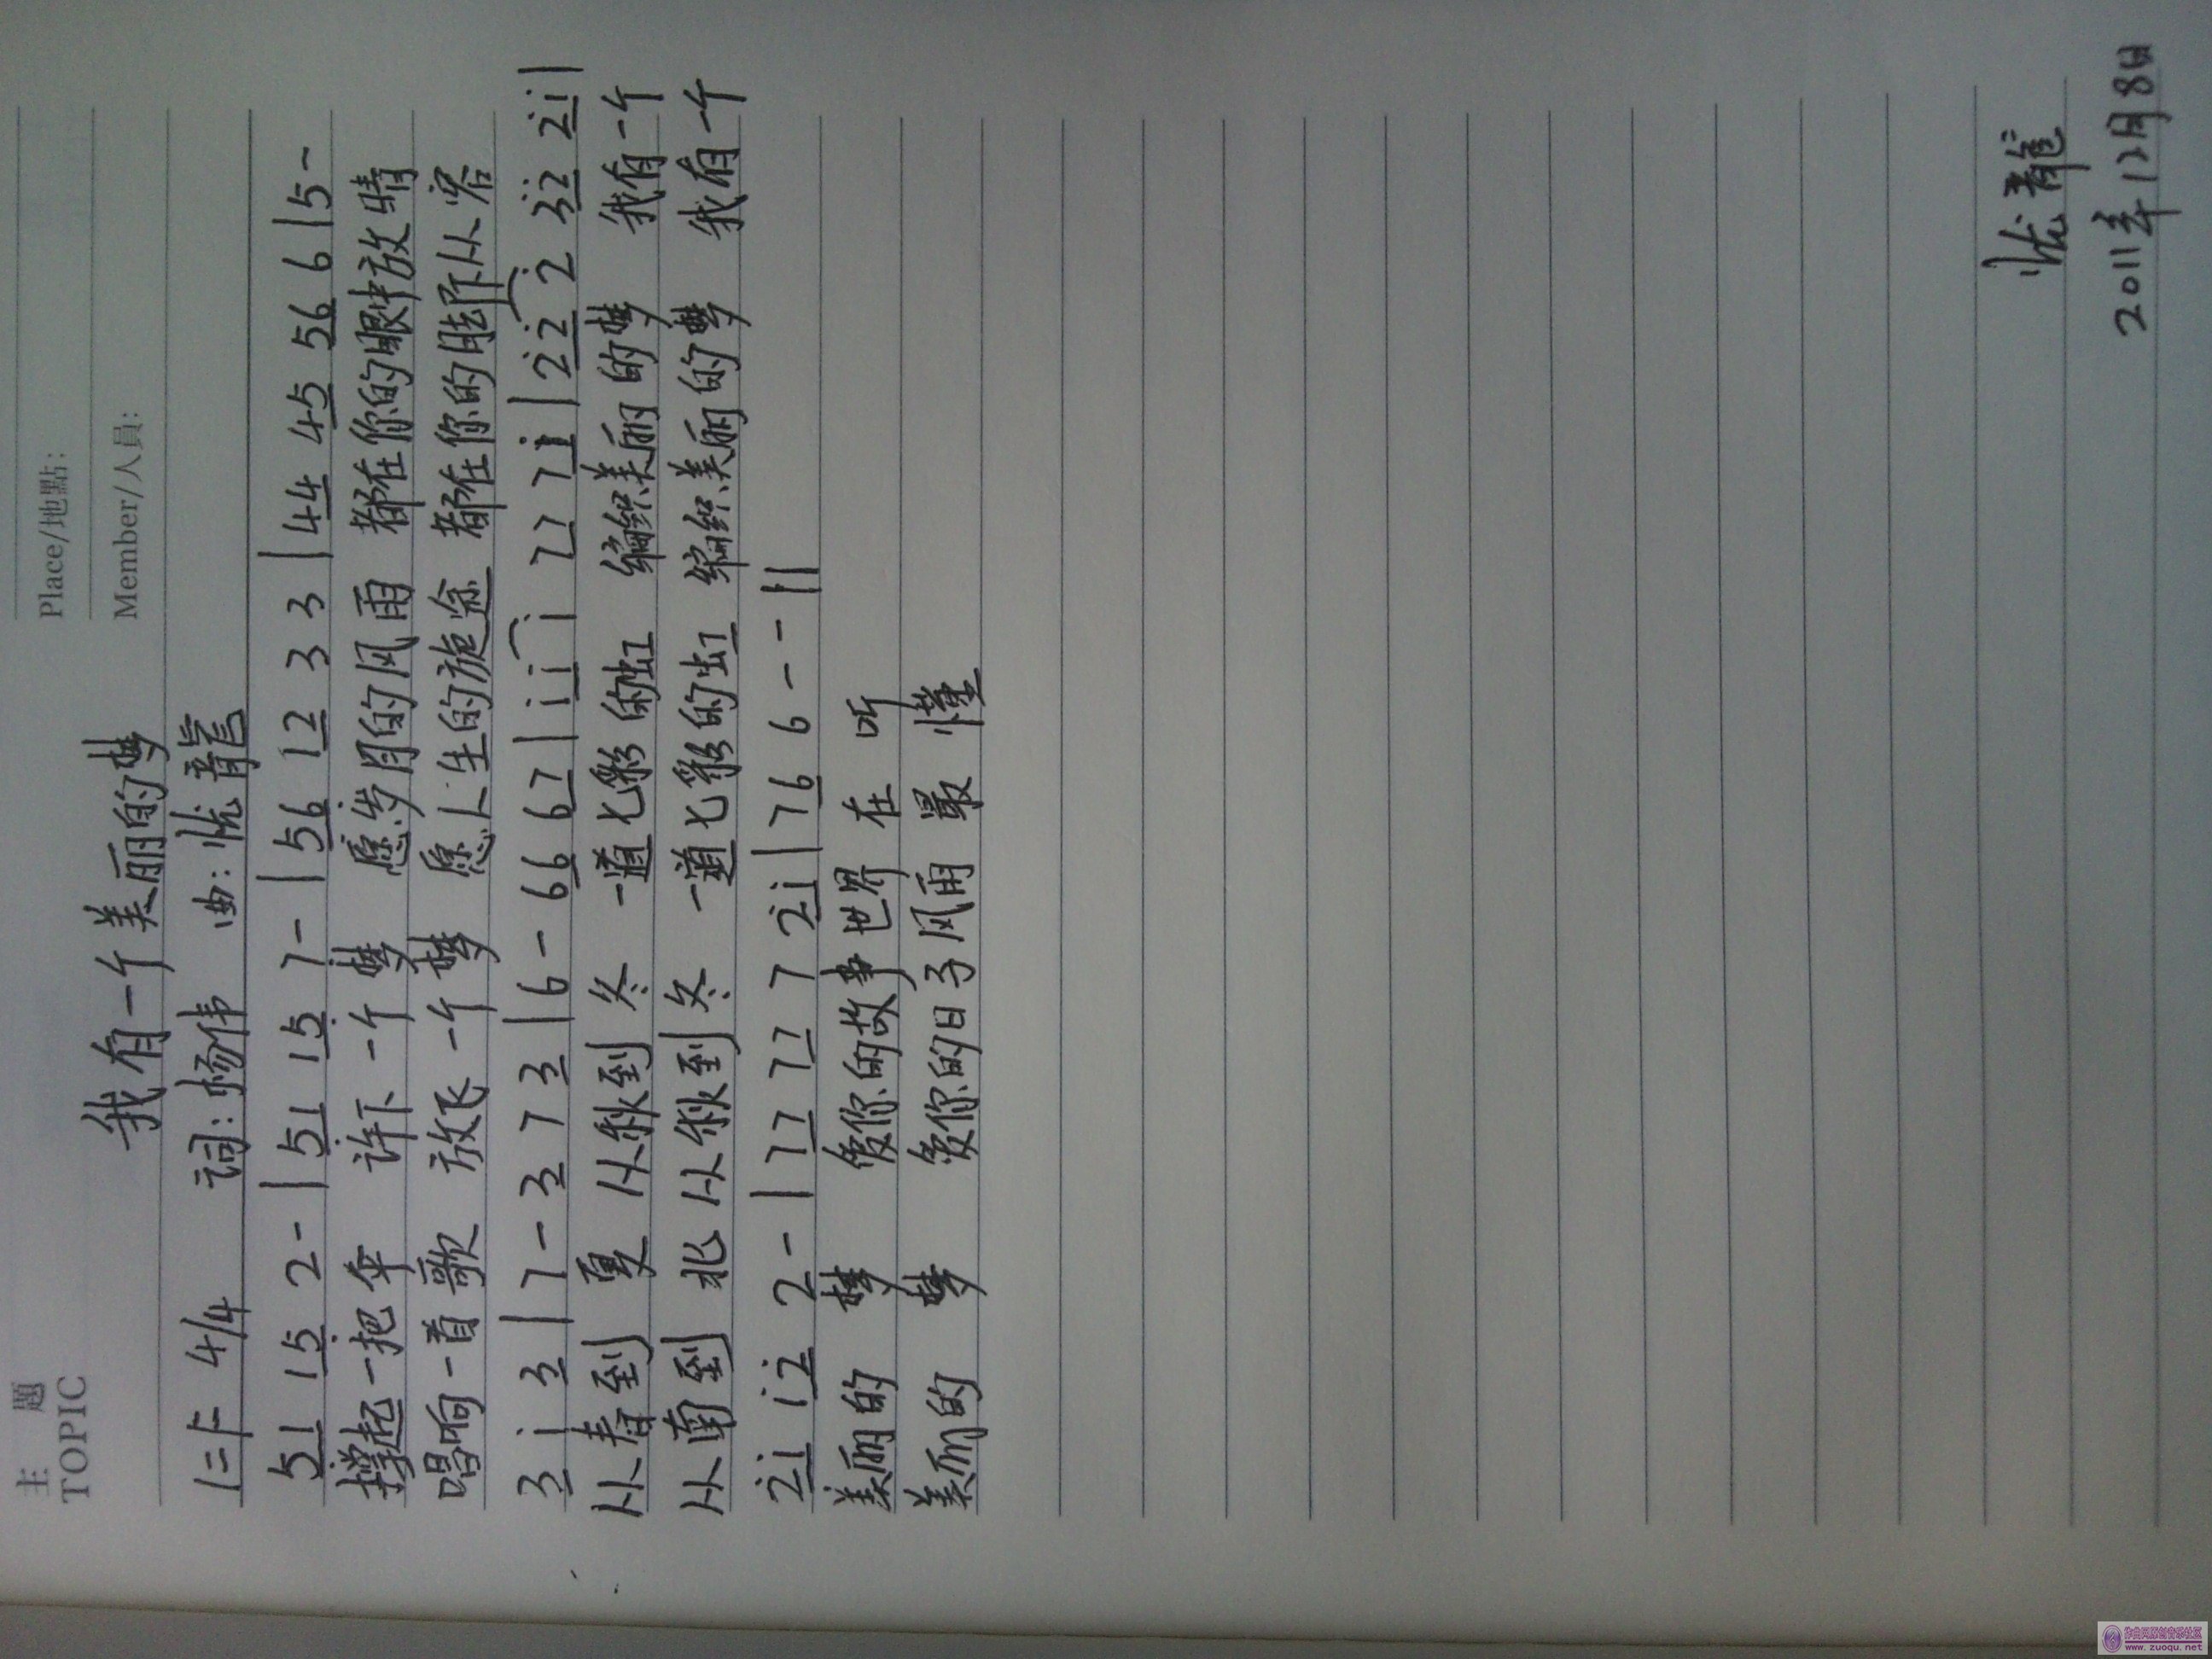 主 題
TOPIC
Place/地點:
Member/人員:
我有一个美丽的梦
1=F 4/4 词:杨伟 曲:忧龍
51 15 2 - | 51 15 7 - | 56 12 3 3 | 44 45 56 6 | 5 -
撑起一把伞 许下一个梦 愿岁月的风雨 都在你的眼中放晴
唱响一首歌 放飞一个梦 愿人生的旅途 都在你的脚下从容
3 i 3 | 7 - 3 7 3 | 6 - 66 67 | i i i 77 7i | 22 2 32 2i |
从春到 夏 从秋到 冬 一道七彩的虹 编织美丽的梦 我有一个
从南到 北 从秋到 冬 一道七彩的虹 编织美丽的梦 我有一个
2i i2 2 - | 77 77 7 2i | 76 6 - - ||
美丽的 梦 爱你的故事世界 在 听
美丽的 梦 爱你的日子风雨 最 懂
忧龍
2011年12月8日
www.zuoqu.net